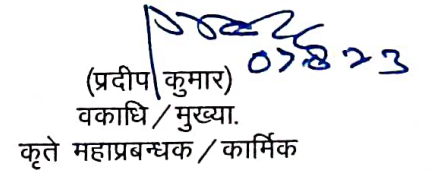 07823
(प्रदीप कुमार)
वकाधि / मुख्या.
कृते महाप्रबन्धक / कार्मिक